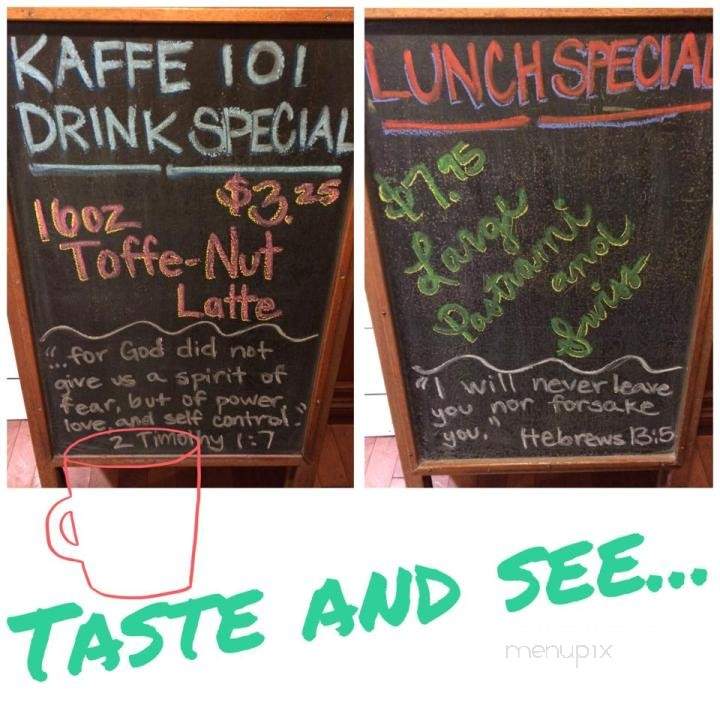 KAFFE 101
DRINK SPECIAL
$3.25
16oz
Toffe-Nut
Latte
"...for God did not
give us a spirit of
fear, but of power,
love, and self control."
2 Timothy 1:7
LUNCH SPECIAL
$7.95
Large
Pastrami
and
Swiss
"I will never leave
you nor forsake
you." Hebrews 13:5
TASTE AND SEE...
menupix